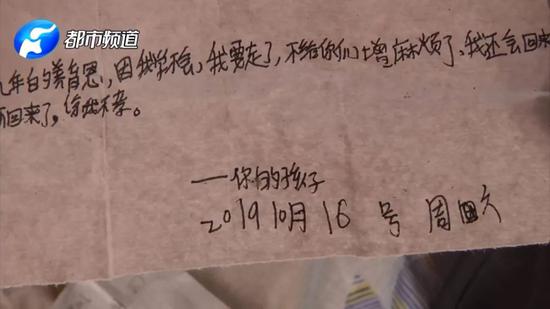 都市频道
年的养育恩,因我学不会,我要走了,不给你们增麻烦了,我还会回来
回来了,你我不幸。
一你的孩仔
2019 10月 16 号 周